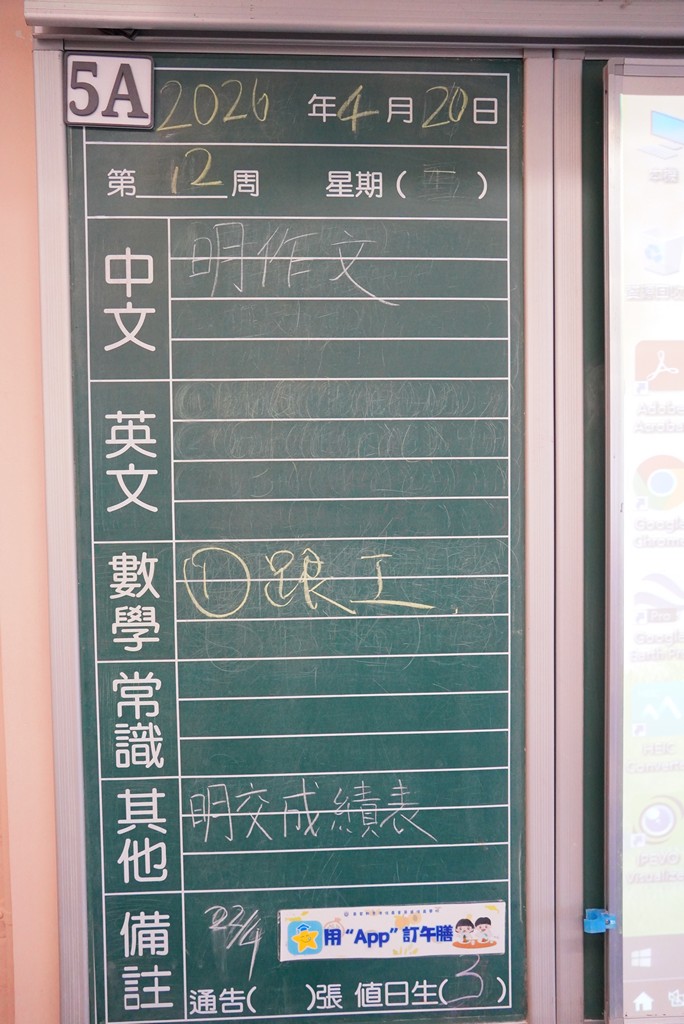 5A
2026 年 4 月 20 日
第 12 周 星期( )
中文
明作文
英文
數學
① 跟工
常識
其他
明交成績表
備註
22/4
用“App”訂午膳
通告( )張 值日生(3)
Adobe
Acrobat
Google
Chrome
Google
Earth Pro
HEIC
Converter
IPEVO
Visualizer